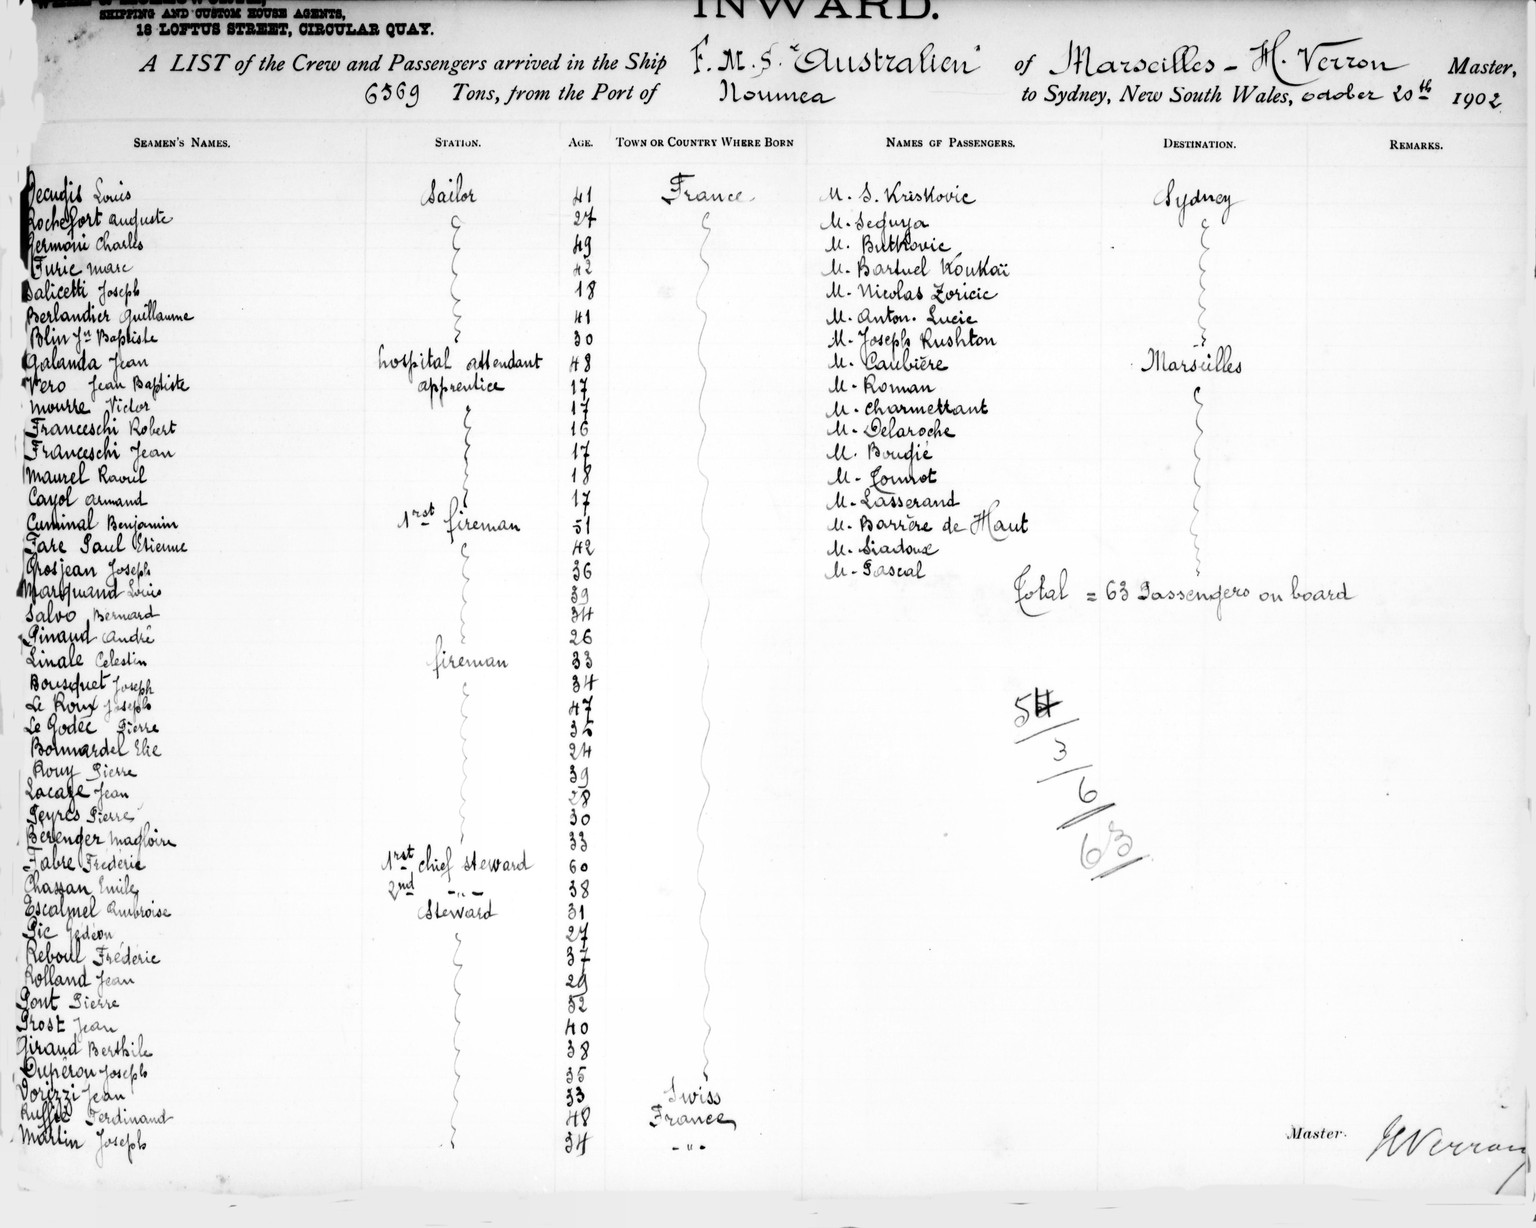 SHIPPING AND CUSTOM HOUSE AGENTS,
18 LOFTUS STREET, CIRCULAR QUAY.
INWARD.
A LIST of the Crew and Passengers arrived in the Ship F.M.S. "Australien" of Marseilles - H. Verron Master,
6369 Tons, from the Port of Noumea to Sydney, New South Wales, october 20th 1902
SEAMEN'S NAMES. STATION. AGE. TOWN OR COUNTRY WHERE BORN NAMES OF PASSENGERS. DESTINATION. REMARKS.
Decugis Louis Sailor 41 France M. S. Kriskovic Sydney
Rochefort auguste 27 M. Seguya
Germoni Charles 49 M. Butkovic
Furic Marc 42 M. Bartuel Koukaï
Salicetti Joseph 18 M. Nicolas Zoricic
Berlandier Guillaume 41 M. Anton. Lucic
Blin Jn Baptiste 30 M. Joseph Rushton
Galanda Jean hospital attendant 48 M. Caubière Marseilles
Vero Jean Baptiste apprentice 17 M. Roman
Mourre Victor 17 M. Charmettant
Franceschi Robert 16 M. Delaroche
Franceschi Jean 17 M. Bougié
Maurel Raoul 18 M.
Cayol armand 17 M. Lasserand
Cuminal Benjamin 1rst fireman 51 M. Barrère de Haut
Fare Paul Etienne 42 M. Siadoux
Grosjean Joseph 36 M. Pascal
Marquand Louis 39 Total = 63 Passengers on board
Salvo Bernard 34
Pinaud André 26
Linale Celestin fireman 33
Bousquet Joseph 34
Le Roux Joseph 47
Le Godec Pierre 35
Bonnardel Elie 24
Rouy Pierre 39
Lacaze Jean 28
Peyres Pierre 30
Berenger Magloire 33
Fabre Frédéric 1rst chief steward 60
Chassan Emile 2nd -"- 38
Escalmel Ambroise Steward 31
Pic Gédéon 27
Reboul Frédéric 37
Rolland Jean 29
Pont Pierre 52
Prost Jean 40
Giraud Berthile 38
Dupéron Joseph 35
Vorizzi Jean 53 Swiss
Ruffié Ferdinand 48 France
Martin Joseph 34 -"-
54
3
6
63
Master. H Verron